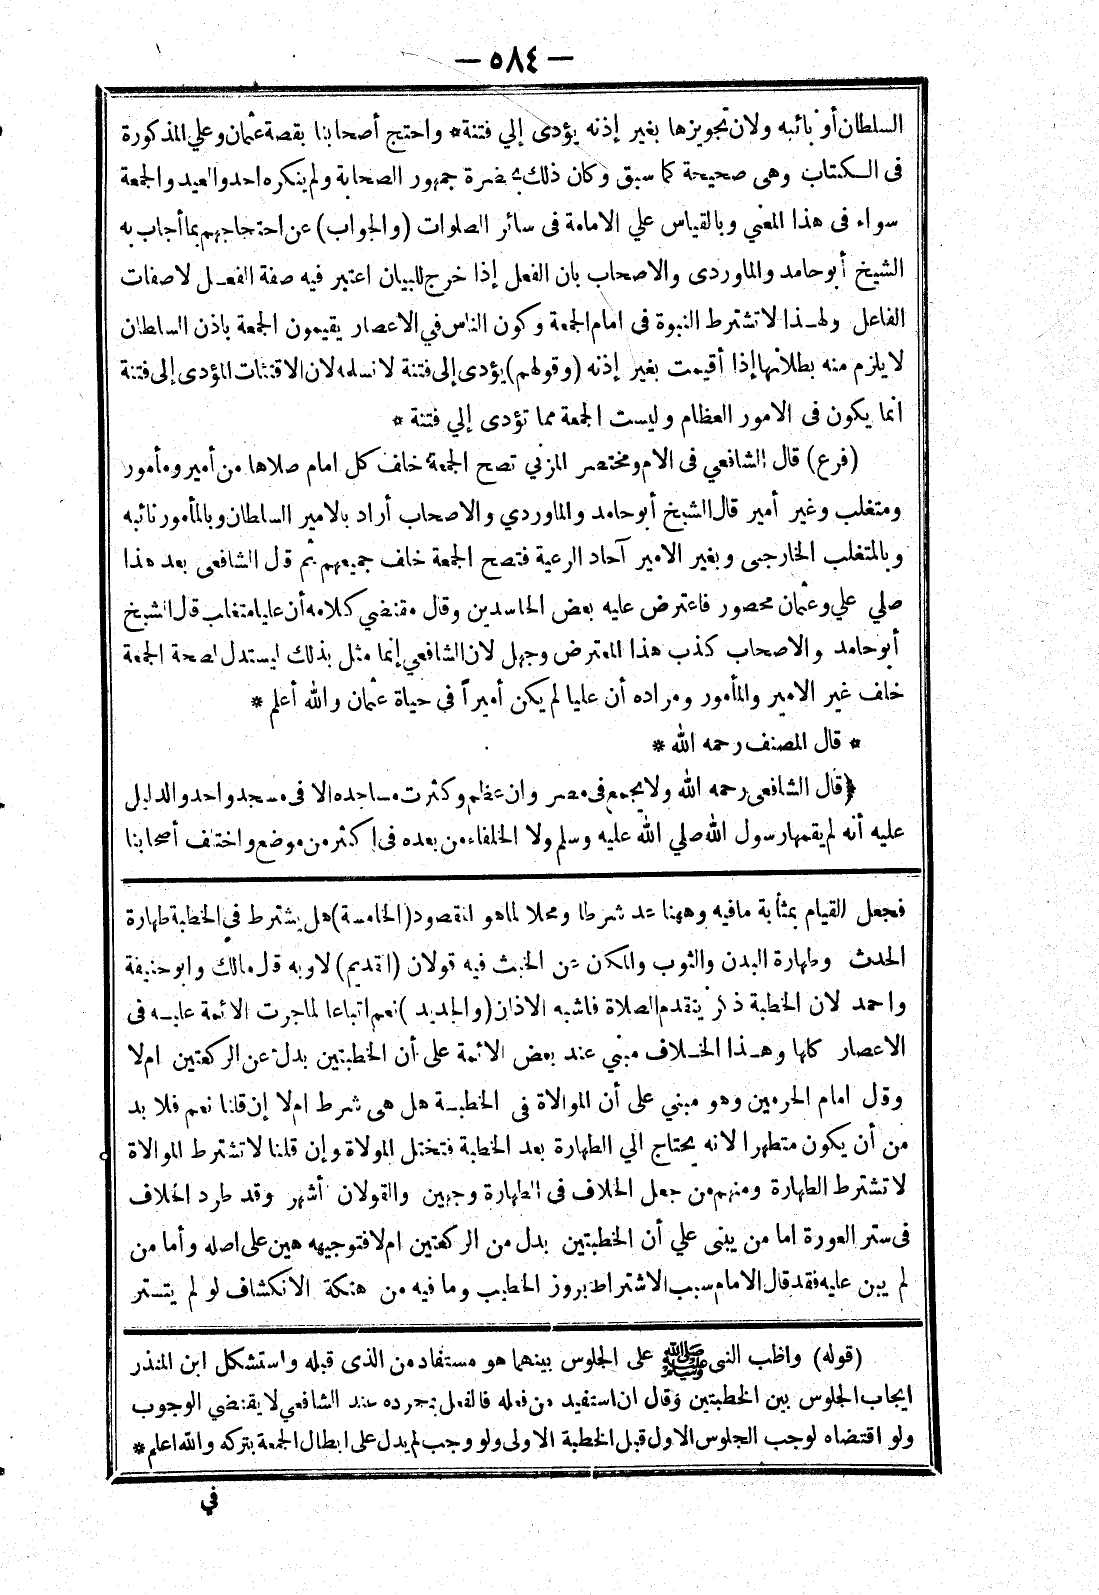 — ٥٨٤ —
السلطان أو نائبه ولان تجويزها بغير إذنه يؤدى إلي فتنة * واحتج أصحابنا بقصة عثمان وعلي المذكورة
فى الـكتاب وهى صحيحة كما سبق وكان ذلك بحضرة جمهور الصحابة ولم ينكره احد والعيد والجمعة
سواء فى هذا المعني وبالقياس علي الامامة فى سائر الصلوات (والجواب) عن احتجاجهم بما أجاب به
الشيخ أبو حامد والماوردى والاصحاب بان الفعل إذا خرج للبيان اعتبر فيه صفة الفعـل لا صفات
الفاعل ولهـذا لا تشترط النبوة فى امام الجمعة وكون الناس في الاعصار يقيمون الجمعة باذن السلطان
لا يلزم منه بطلانها إذا أقيمت بغير إذنه (وقولهم) يؤدى إلى فتنة لا نسلمه لان الافتئات المؤدى إلى فتنة
انما يكون فى الامور العظام وليست الجمعة مما تؤدى إلي فتنة *
(فرع) قال الشافعي فى الام ومختصر المزني تصح الجمعة خلف كل امام صلاها من أمير ومأمور
ومتغلب وغير أمير قال الشيخ أبو حامد والماوردي والاصحاب أراد بالامير السلطان وبالمأمور نائبه
وبالمتغلب الخارجى وبغير الامير آحاد الرعية فتصح الجمعة خلف جميعهم ثم قال الشافعى بعد هذا
صلي علي وعثمان محصور فاعترض عليه بعض الحاسدين وقال مقتضي كلامه أن عليا متغلب قال الشيخ
أبو حامد والاصحاب كذب هذا المعترض وجهل لان الشافعي إنما مثل بذلك ليستدل لصحة الجمعة
خلف غير الامير والمأمور ومراده أن عليا لم يكن أميراً في حياة عثمان والله أعلم *
* قال المصنف رحمه الله *
﴿قال الشافعى رحمه الله ولا يجمع فى مصر وان عظم وكثرت مساجده الا فى مسجد واحد والدليل
عليه أنه لم يقمها رسول الله صلي الله عليه وسلم ولا الخلفاء من بعده فى اكثر من موضع واختلف أصحابنا
فجعل القيام بمثابة مافيه وههنا عد شرطا ومحلا لما هو المقصود (الخامسة) هل يشترط في الخطبة طهارة
الحدث وطهارة البدن والثوب والمكان عن الخبث فيه قولان (القديم) لا وبه قال مالك وابو حنيفة
واحمد لان الخطبة ذكر يتقدم الصلاة فاشبه الاذان (والجديد) نعم اتباعا لما جرت الائمة عليـه فى
الاعصار كلها وهـذا الخـلاف مبني عند بعض الائمة على أن الخطبتين بدل عن الركعتين ام لا
وقال امام الحرمين وهو مبني على أن الموالاة فى الخطبـة هل هى شرط ام لا إن قلنا نعم فلا بد
من أن يكون متطهرا لانه يحتاج الي الطهارة بعد الخطبة فتختل الموالاة وإن قلنا لا تشترط الموالاة
لا تشترط الطهارة ومنهم من جعل الخلاف فى الطهارة وجهين والقولان أشهر وقد طرد الخلاف
فى ستر العورة اما من يبنى علي أن الخطبتين بدل من الركعتين ام لا فتوجيهه هين على اصله وأما من
لم يبن عليه فقد قال الامام سبب الاشتراط بروز الخطيب وما فيه من هتكة الانكشاف لو لم يتستر
(قوله) واظب النبى ﷺ على الجلوس بينهما هو مستفاد من الذى قبله واستشكل ابن المنذر
ايجاب الجلوس بين الخطبتين وقال ان استفيد من فعله فالفعل بمجرده عند الشافعي لا يقتضي الوجوب
ولو اقتضاه لوجب الجلوس الاول قبل الخطبة الاولى ولو وجب لم يدل على ابطال الجمعة بتركه والله اعلم *
في